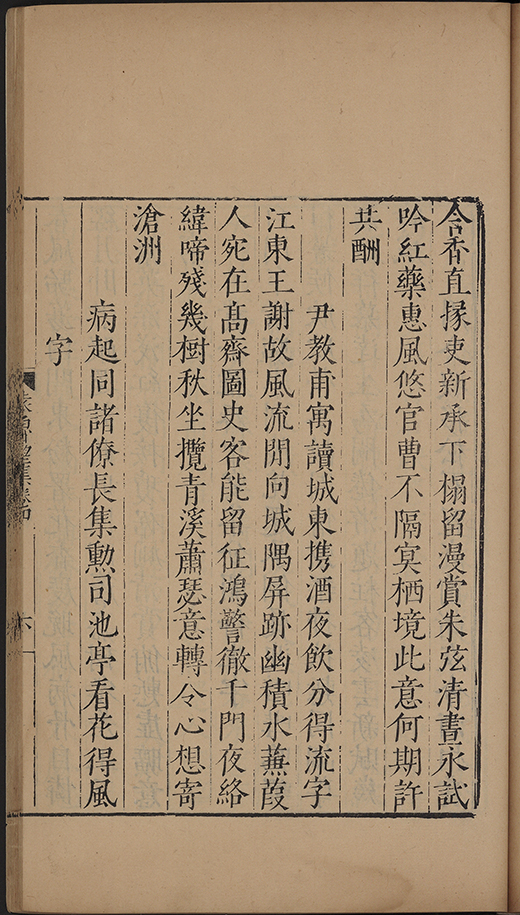 含香直掾吏新承下榻留漫賞朱弦清晝永試
吟紅藥惠風悠官曹不隔寞栖境此意何期許
共酬
尹教甫寓讀城東携酒夜飲分得流字
江東王謝故風流閒向城隅屏跡幽積水蕪葭
人宛在高齋圖史客能留征鴻警徹千門夜絡
緯啼殘幾樹秋坐攬青溪蕭瑟意轉令心想寄
滄洲
病起同諸僚長集勲司池亭看花得風
字